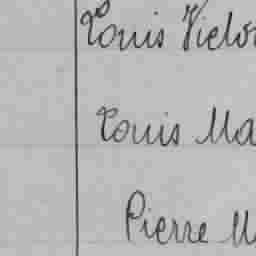 Louis Victo
Louis Ma
Pierre M